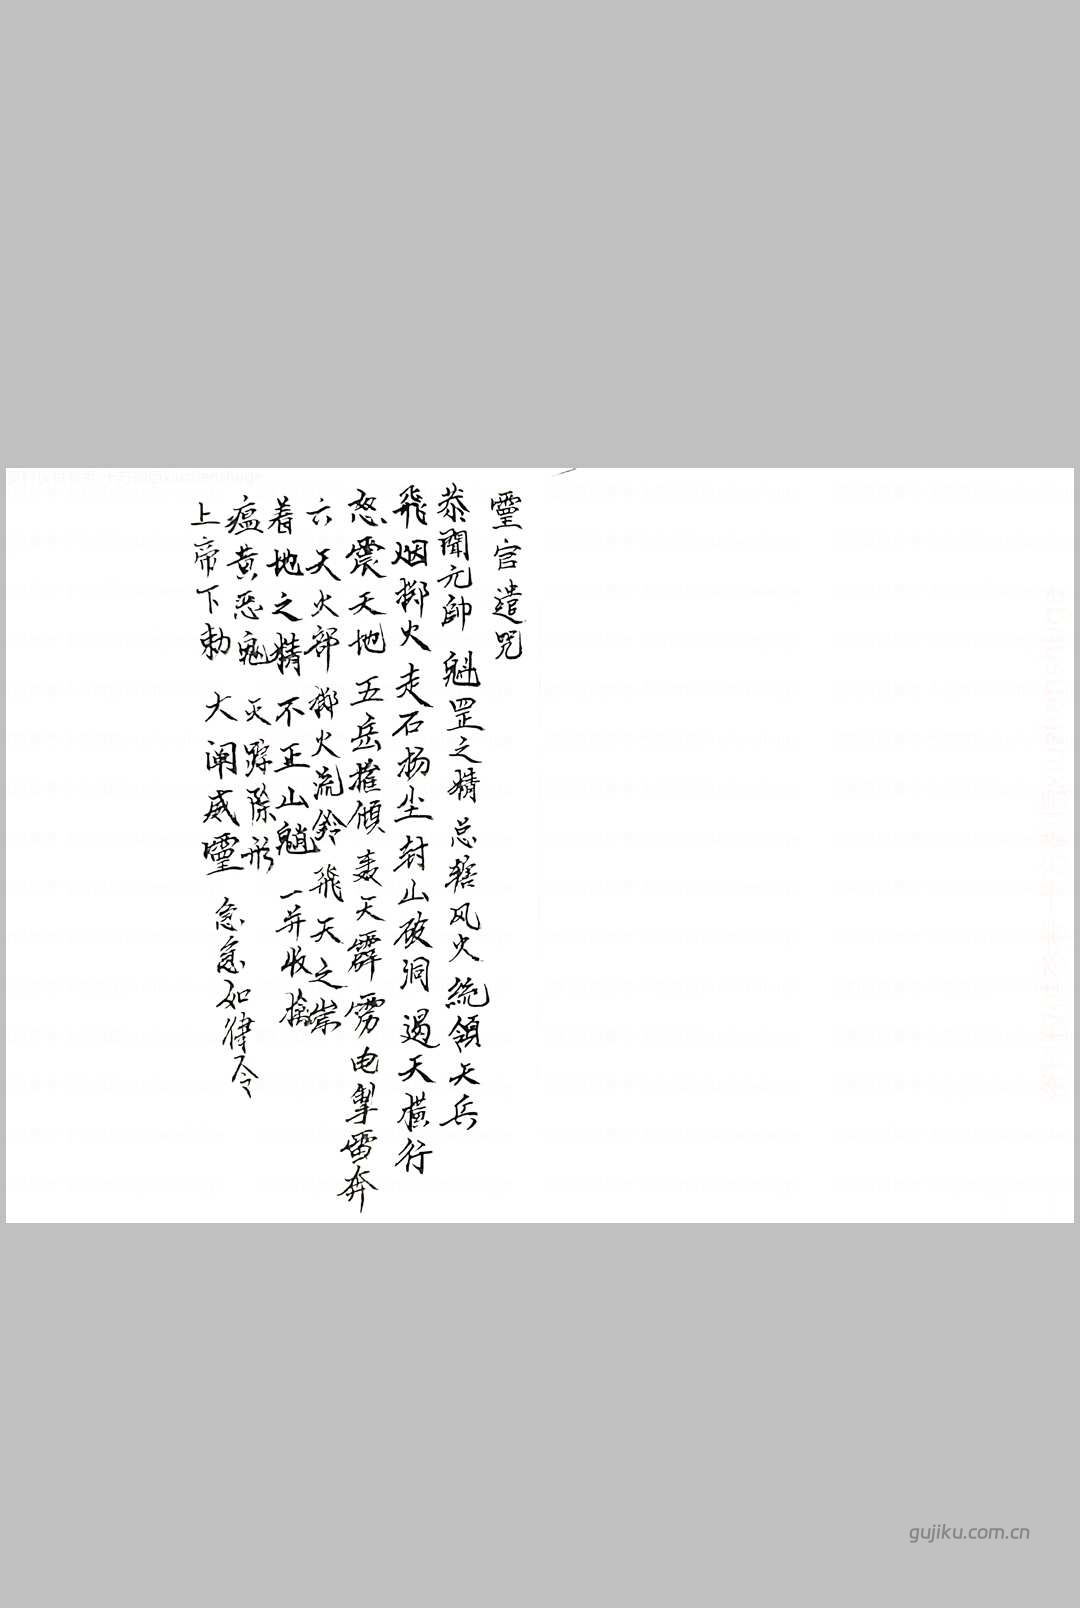 靈官遣咒
恭聞元帥 魁罡之精 总辖风火 統領天兵
飛烟掷火 走石扬尘 封山破洞 遏天橫行
怒震天地 五岳摧傾 轰天霹雳 电掣雷奔
六天火部 掷火流鈴 飛天之祟
着地之精 不正山魈 一并收擒
瘟黄恶鬼 灭踪除形
上帝下勅 大阐威靈 急急如律令
gujiku.com.cn